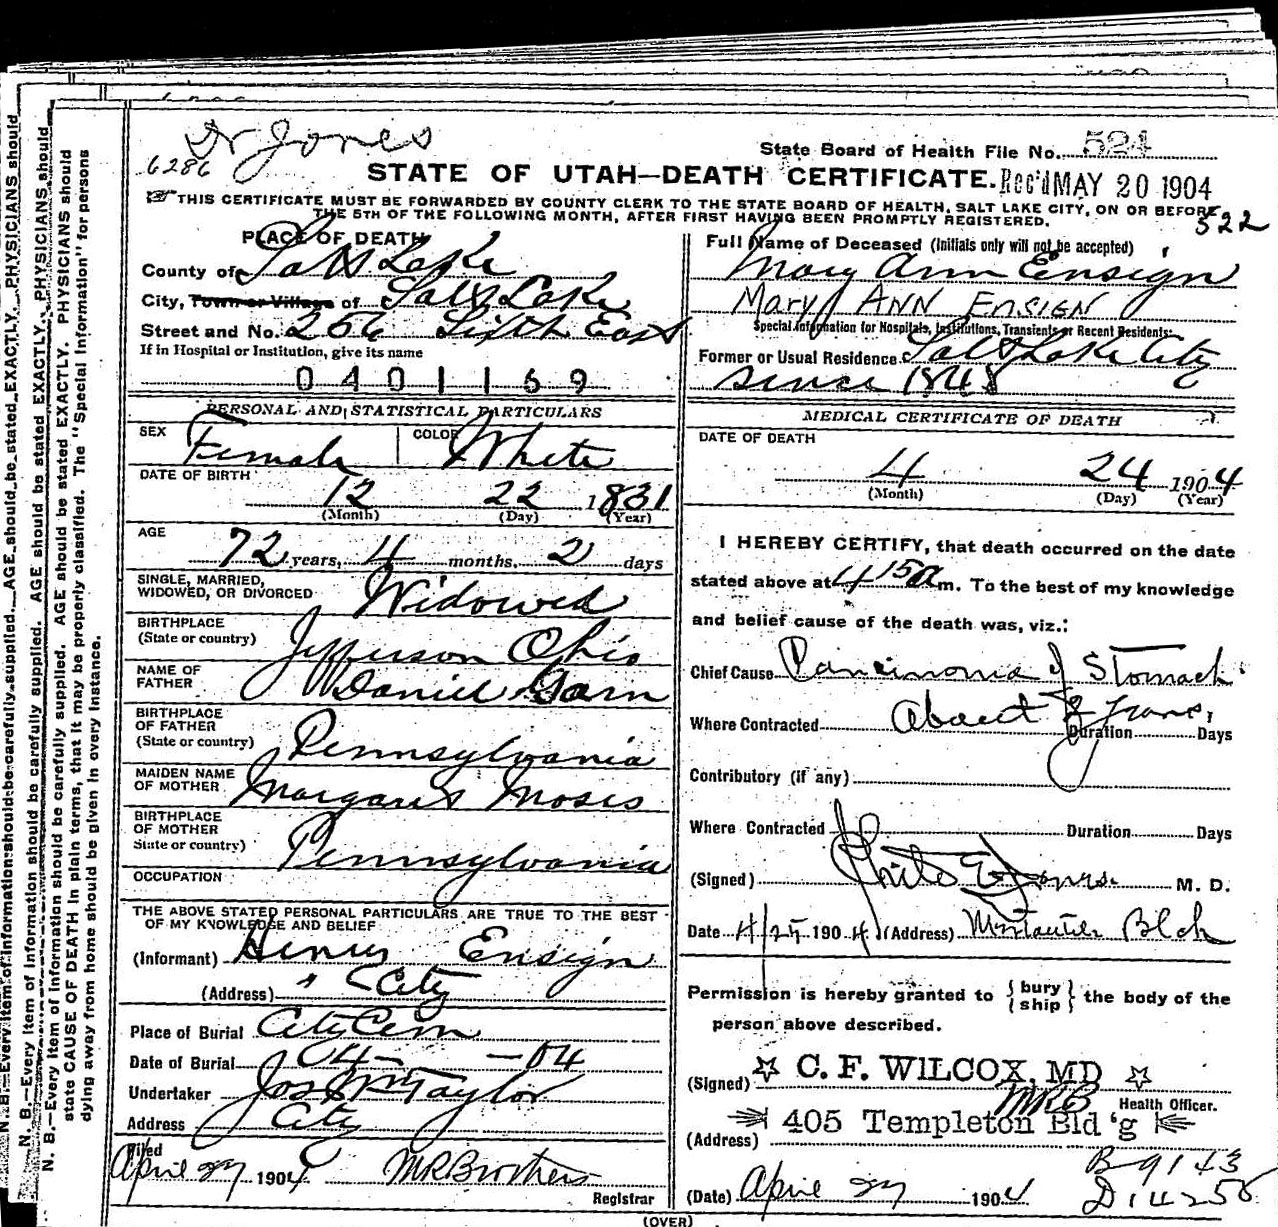 Dr Jones
6286
State Board of Health File No. 524
STATE OF UTAH—DEATH CERTIFICATE. Rec'd MAY 20 1904
THIS CERTIFICATE MUST BE FORWARDED BY COUNTY CLERK TO THE STATE BOARD OF HEALTH, SALT LAKE CITY, ON OR BEFORE
THE 5TH OF THE FOLLOWING MONTH, AFTER FIRST HAVING BEEN PROMPTLY REGISTERED.
522
PLACE OF DEATH
County of Salt Lake
City, Town or Village of Salt Lake
Street and No. 256 Sixth East
If in Hospital or Institution, give its name
0401169
PERSONAL AND STATISTICAL PARTICULARS
SEX Female COLOR White
DATE OF BIRTH
12 22 1831
(Month) (Day) (Year)
AGE
72 years, 4 months, 2 days
SINGLE, MARRIED,
WIDOWED, OR DIVORCED Widowed
BIRTHPLACE
(State or country) Jefferson Ohio
NAME OF
FATHER Daniel Garn
BIRTHPLACE
OF FATHER
(State or country) Pennsylvania
MAIDEN NAME
OF MOTHER Margaret Moses
BIRTHPLACE
OF MOTHER
State or country) Pennsylvania
OCCUPATION
THE ABOVE STATED PERSONAL PARTICULARS ARE TRUE TO THE BEST
OF MY KNOWLEDGE AND BELIEF
(Informant) Henry Ensign
(Address) " City
Place of Burial City Cem
Date of Burial 04– –04
Undertaker Jos Wm Taylor
Address City
Filed
April 27 1904 M R Brothers
Registrar
Full Name of Deceased (Initials only will not be accepted)
Mary Ann Ensign
MARY ANN ENSIGN
Special Information for Hospitals, Institutions, Transients or Recent Residents:
Former or Usual Residence Salt Lake City
since 1848
MEDICAL CERTIFICATE OF DEATH
DATE OF DEATH
4 24 1904
(Month) (Day) (Year)
I HEREBY CERTIFY, that death occurred on the date
stated above at 4 15 a m. To the best of my knowledge
and belief cause of the death was, viz.:
Chief Cause Carcinoma of Stomach
Where Contracted about years, Duration Days
Contributory (if any)
Where Contracted Duration Days
(Signed) Jones M. D.
Date 4/25 1904 (Address) Blck
Permission is hereby granted to { bury
ship } the body of the
person above described.
(Signed) C. F. WILCOX, MD
MRB Health Officer.
(Address) 405 Templeton Bld'g
(Date) April 27 1904
B 9143
D 14258
(OVER)
N. B.—Every item of information should be carefully supplied. AGE should be stated EXACTLY. PHYSICIANS should
N. B.—Every item of information should be carefully supplied. AGE should be stated EXACTLY. PHYSICIANS should
N. B.—Every item of information should be carefully supplied. AGE should be stated EXACTLY. PHYSICIANS should
state CAUSE OF DEATH in plain terms, that it may be properly classified. The "Special Information" for persons
dying away from home should be given in every instance.